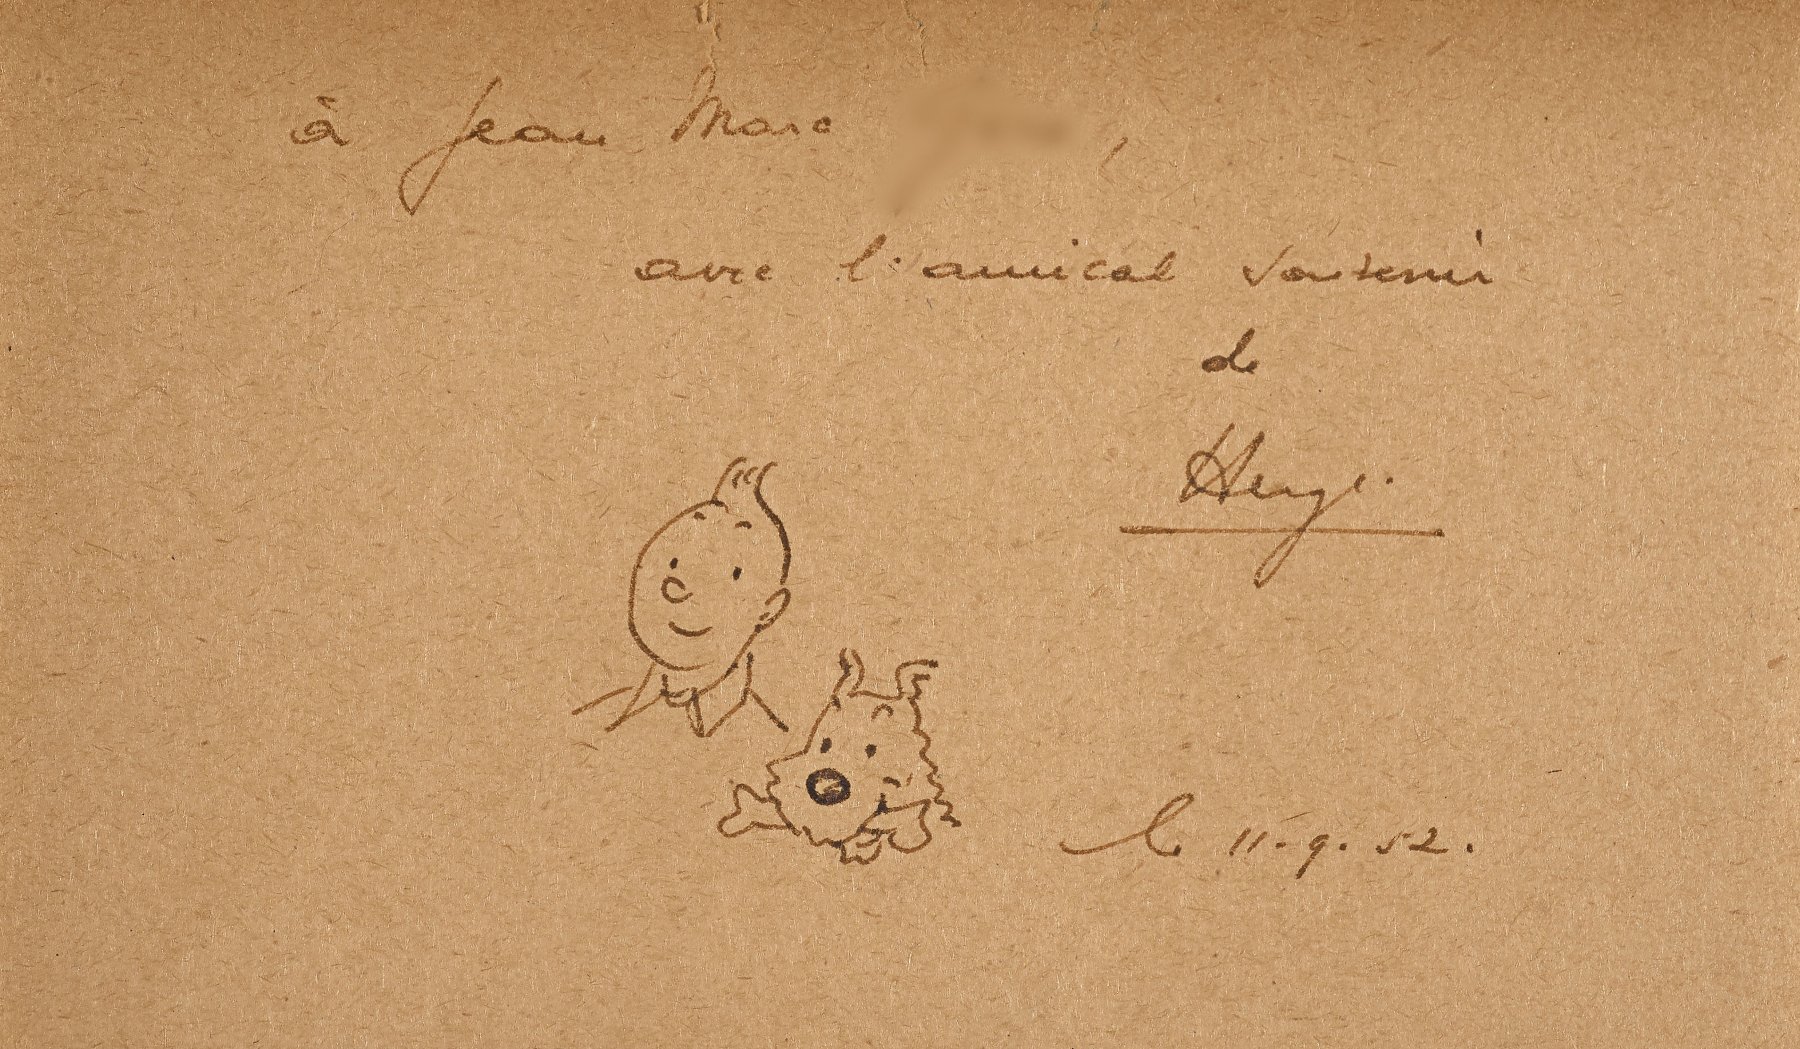 à Jean Marc ,
avec l'amical souvenir
de
Hergé.
le 11.9.52.